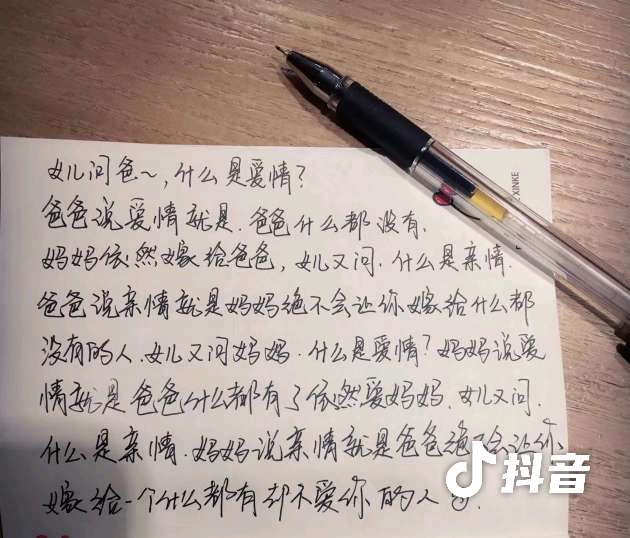 女儿问爸~,什么是爱情?
爸爸说爱情就是.爸爸什么都没有.
妈妈依然嫁给爸爸,女儿又问.什么是亲情.
爸爸说亲情就是妈妈绝不会让你嫁给什么都
没有的人.女儿又问妈妈.什么是爱情?妈妈说爱
情就是爸爸什么都有了依然爱妈妈.女儿又问.
什么是亲情.妈妈说亲情就是爸爸绝不会让你
嫁给一个什么都有却不爱你的人.
XINKE
抖音